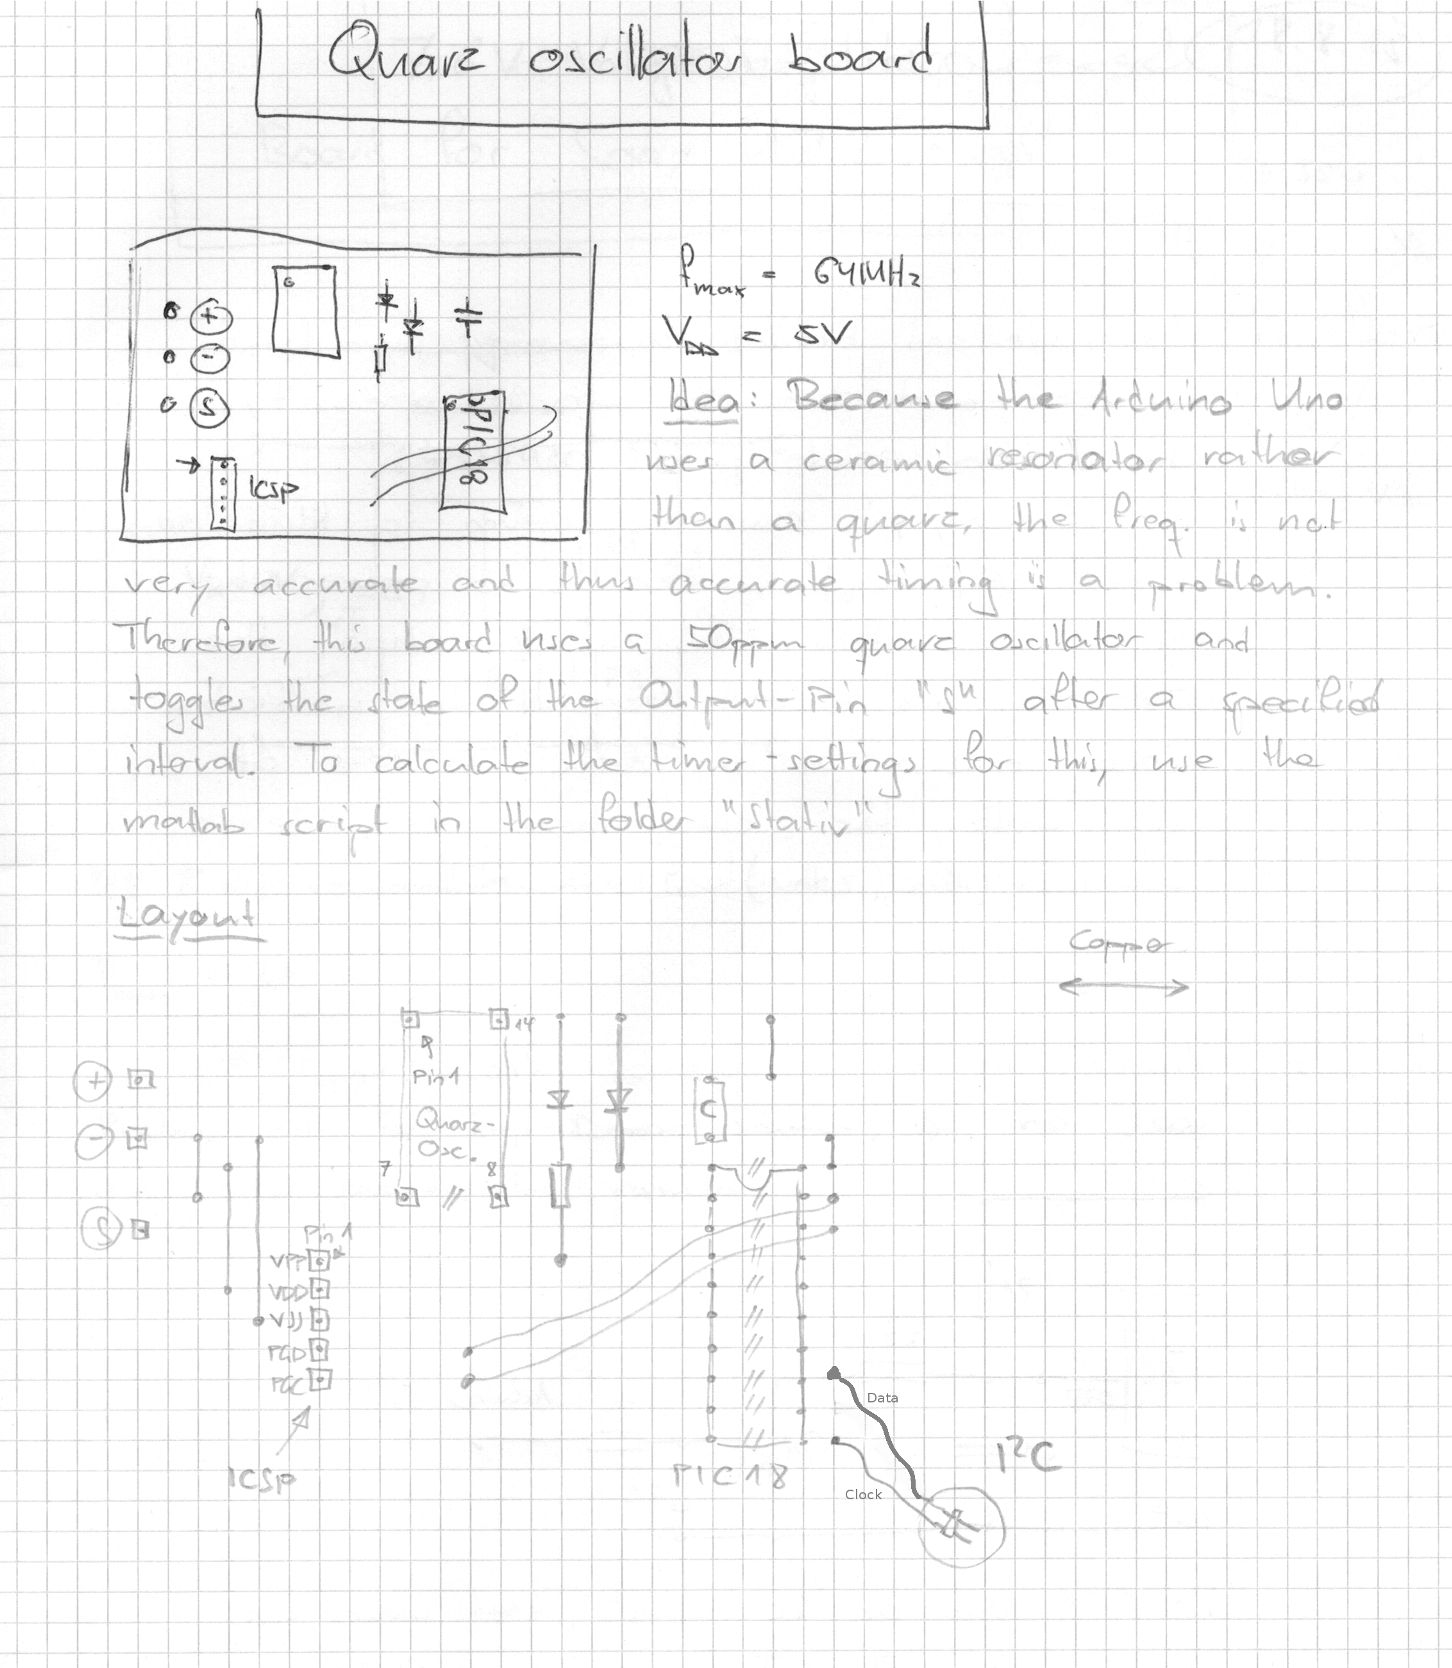 Quarz oscillator board
fmax = 64MHz
VDD = 5V
+
-
S
ICSP
PIC18
Idea: Because the Arduino Uno
uses a ceramic resonator rather
than a quarz, the freq. is not
very accurate and thus accurate timing is a problem.
Therefore, this board uses a 50ppm quarz oscillator and
toggles the state of the Output-Pin "S" after a specified
interval. To calculate the timer-settings for this, use the
matlab script in the folder "Stativ"
Layout
Copper
+
-
S
14
Pin1
Quarz-
Osc.
7
8
C
Pin1
VPP
VDD
VSS
PGD
PGC
ICSP
PIC18
Data
Clock
I²C